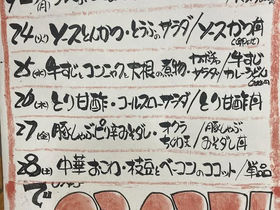 24(火) ソースとんかつ・とうふのサラダ/ソースかつ丼
25(水) 牛すじとコンニャクと大根の煮物・サラダ/牛すじカレーうどん
26(木) とり甘酢・コールスローサラダ/とり甘酢丼
27(金) 豚しゃぶピリ辛おろし・オクラ/豚しゃぶおろし丼
28(土) 中華おこわ・枝豆とベーコンのココット/単品
で